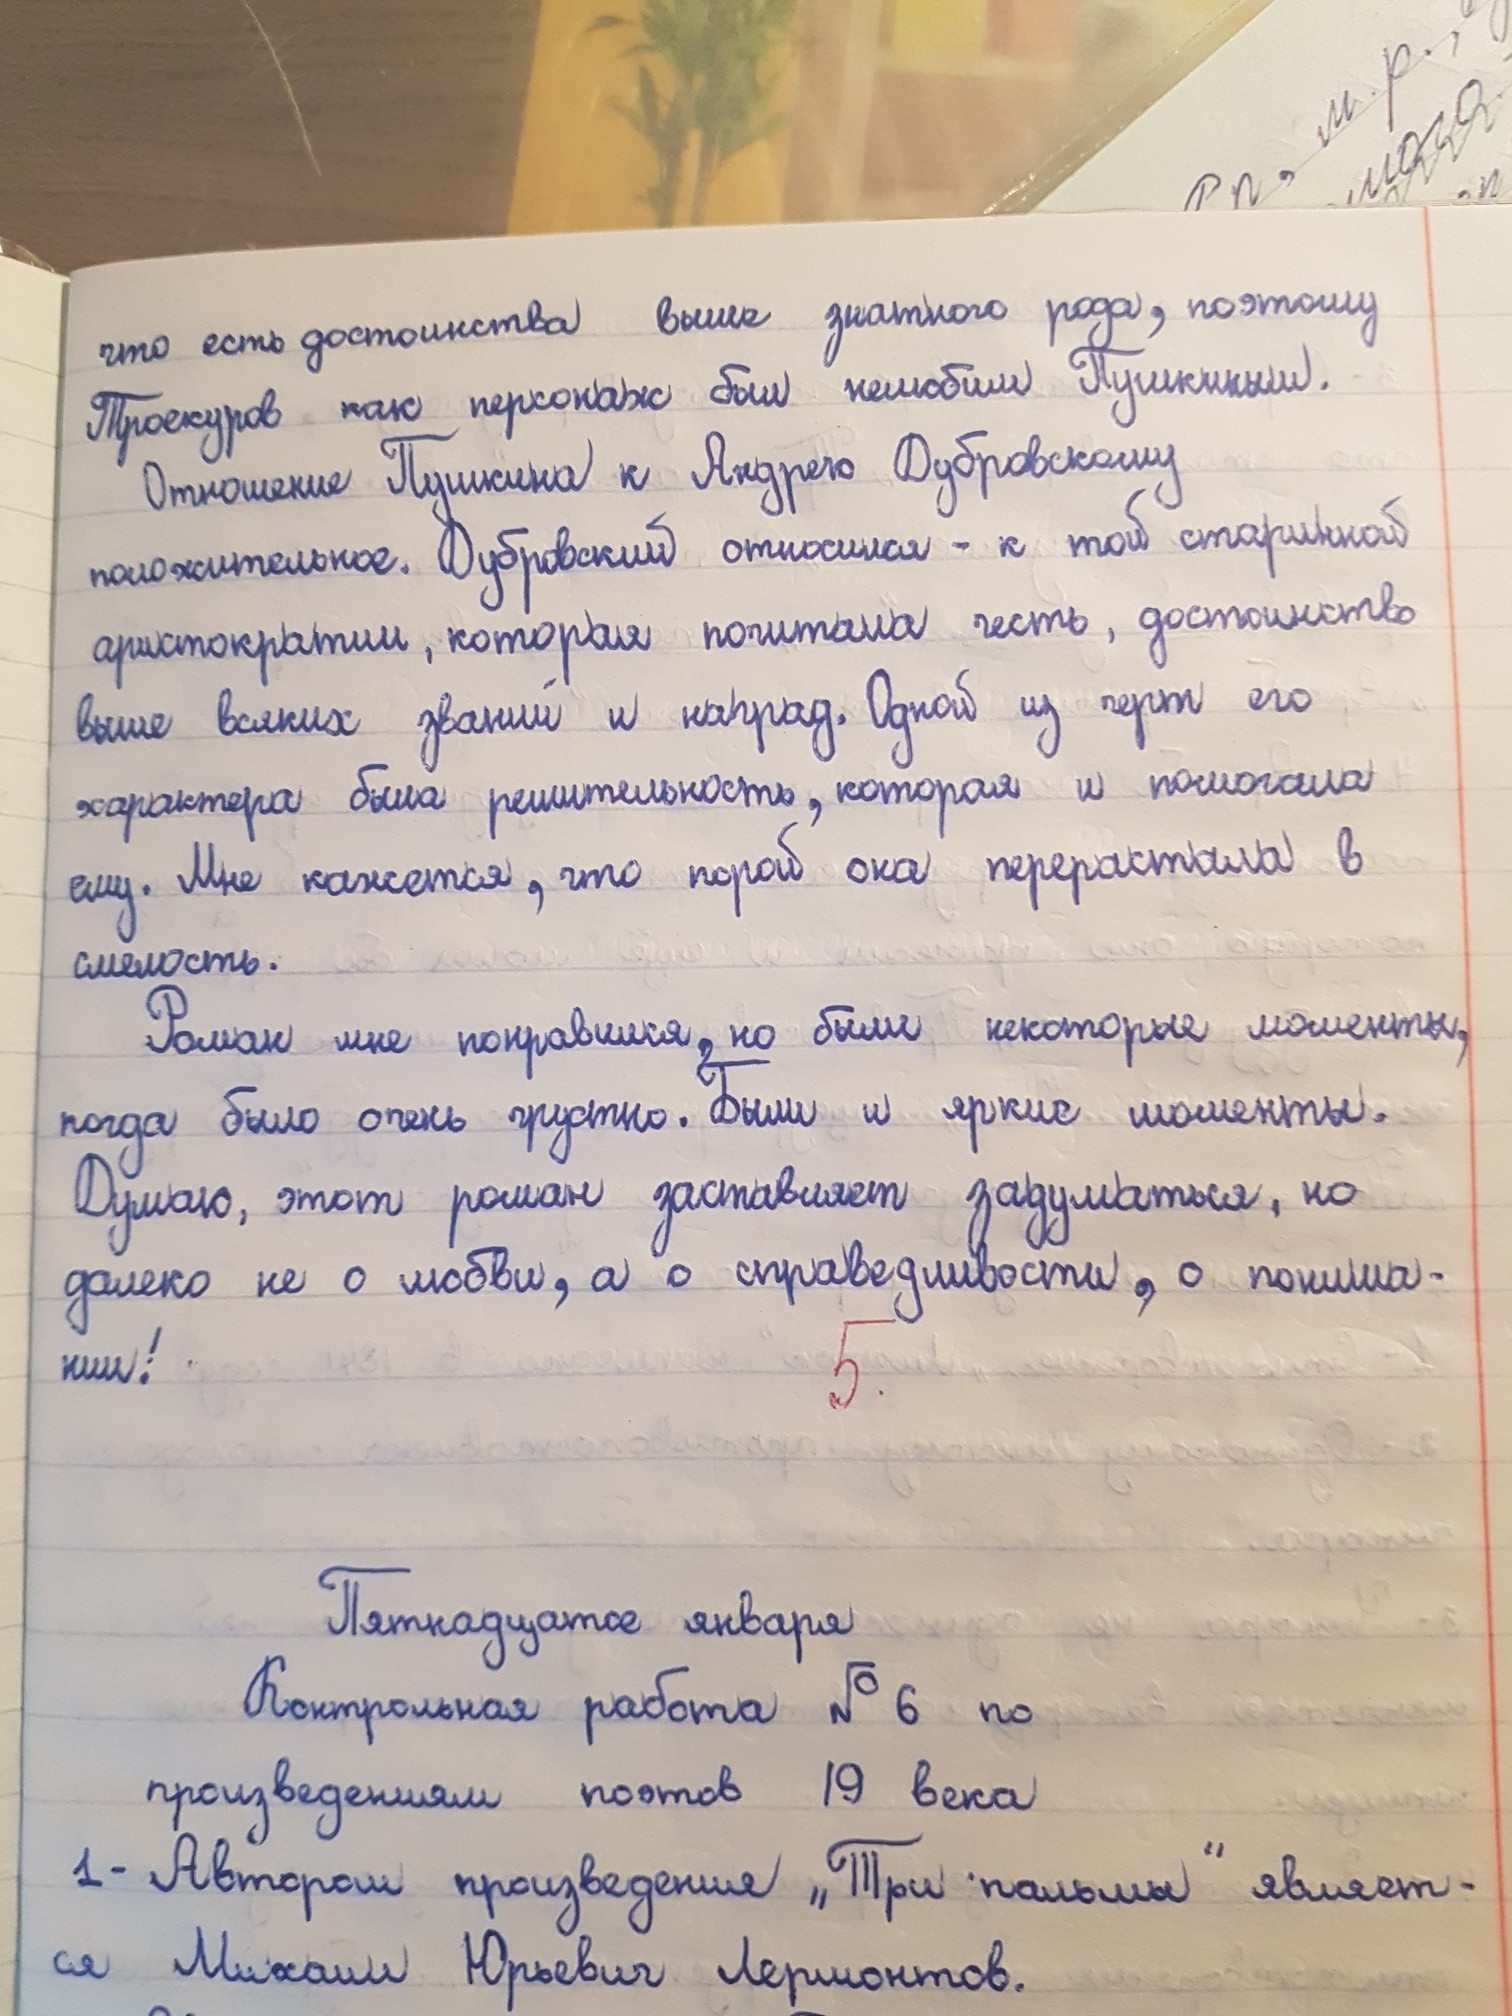 п, м. р.,
что есть достоинства выше знатного рода, поэтому
Троекуров как персонаж был нелюбим Пушкиным.
Отношение Пушкина к Андрею Дубровскому
положительное. Дубровский относился - к той старинной
аристократии, которая почитала честь, достоинство
выше всяких званий и наград. Одной из черт его
характера была решительность, которая и помогала
ему. Мне кажется, что порой она перерастала в
смелость.
Роман мне понравился, но были некоторые моменты,
когда было очень грустно. Были и яркие моменты.
Думаю, этот роман заставляет задуматься, но
далеко не о любви, а о справедливости, о понима-
нии!
5.
Пятнадцатое января
Контрольная работа № 6 по
произведениям поэтов 19 века
1- Автором произведения „Три пальмы“ являет-
ся Михаил Юрьевич Лермонтов.